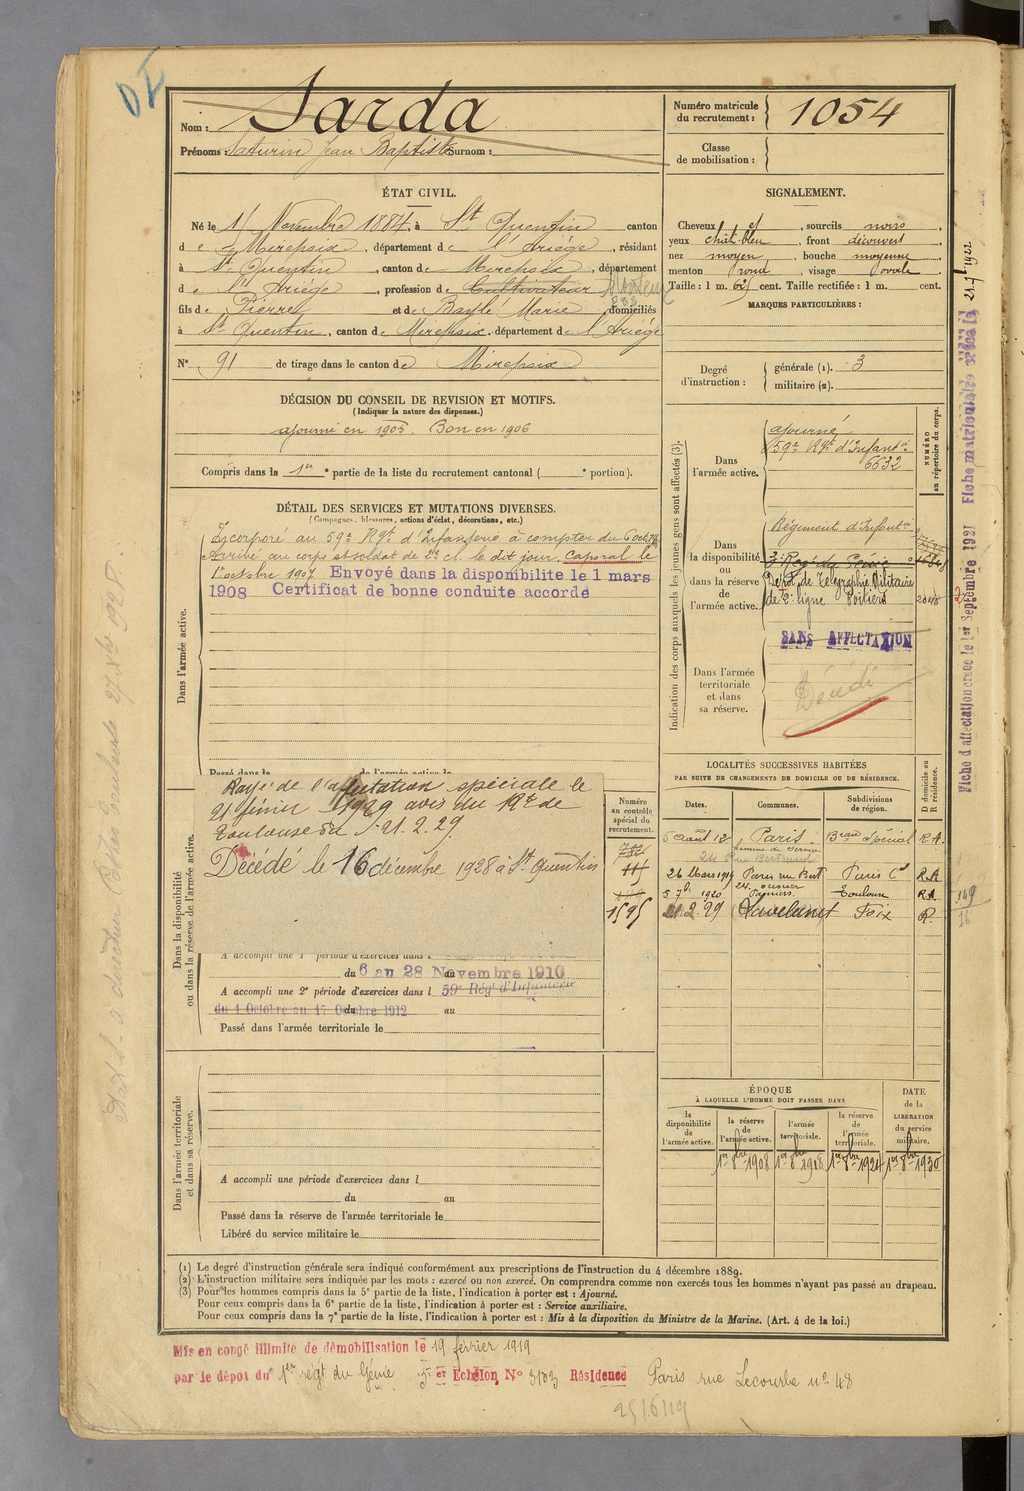 Nom : Sarda
Prénoms : Saturin Jean Baptiste Surnom :
Numéro matricule du recrutement : 1054
Classe de mobilisation :
ÉTAT CIVIL.
Né le 1er Novembre 1884, à St Quentin canton
de Mirepoix, département de l'Ariège, résidant
à St Quentin, canton de Mirepoix, département
de l'Ariège, profession de Cultivateur
fils de Pierre et de Bayle Marie, domiciliés
à St Quentin, canton de Mirepoix, département de l'Ariège
No 91 de tirage dans le canton de Mirepoix
SIGNALEMENT.
Cheveux et, sourcils noirs,
yeux chât. bleu, front découvert
nez moyen, bouche moyenne
menton rond, visage ovale
Taille : 1 m. 62 cent. Taille rectifiée : 1 m. cent.
MARQUES PARTICULIÈRES :
Degré d'instruction :
générale (1). 3
militaire (2).
DÉCISION DU CONSEIL DE REVISION ET MOTIFS.
(Indiquer la nature des dispenses.)
ajourné en 1905. Bon en 1906
Compris dans la 1re partie de la liste du recrutement cantonal ( e portion).
DÉTAIL DES SERVICES ET MUTATIONS DIVERSES.
(Campagnes, blessures, actions d'éclat, décorations, etc.)
Dans l'armée active.
Incorporé au 59e Rgt d'Infanterie à compter du 6 oct.
Arrivé au corps et soldat de 2e cl. le dit jour. Caporal le
1er octobre 1907 Envoyé dans la disponibilite le 1 mars
1908 Certificat de bonne conduite accordé
Passé dans la de l'armée active le
Dans la disponibilité ou dans la réserve de l'armée active.
Rayé de l'affectation spéciale le
21 février 1929 avis du 19e de
Toulouse du 21.2.29.
Décédé le 16 décembre 1928 à St Quentin
A accompli une 1e période d'exercices dans l
du 6 au 28 Novembre 1910
A accompli une 2e période d'exercices dans l 59e Régt d'Infanterie
du 1 Octobre au 17 Octobre 1912 au
Passé dans l'armée territoriale le
Numéro au contrôle spécial du recrutement.
1595
Dans l'armée territoriale et dans sa réserve.
A accompli une période d'exercices dans l
du au
Passé dans la réserve de l'armée territoriale le
Libéré du service militaire le
Indication des corps auxquels les jeunes gens sont affectés (3).
NUMÉRO au répertoire du corps.
Dans l'armée active.
ajourné
59e Rgt d'Infanterie
6632
Dans la disponibilité ou dans la réserve de l'armée active.
Régiment d'Infanterie
3e Régt du Génie
Dépôt de Télégraphie Militaire
de 2e ligne Poitiers
SANS AFFECTATION
Dans l'armée territoriale et dans sa réserve.
Décédé
LOCALITÉS SUCCESSIVES HABITÉES
PAR SUITE DE CHANGEMENTS DE DOMICILE OU DE RÉSIDENCE.
Dates. Communes. Subdivisions de région. D domicile ou R résidence.
5 août 12 Paris Beau Spécial R.A.
26 Mars 1919 Paris rue Bert Paris Cl R.A
1920 Pamiers Toulouse R.A
21.2.29 Lavelanet Foix R.
ÉPOQUE
À LAQUELLE L'HOMME DOIT PASSER DANS
la disponibilité de l'armée active.
la réserve de l'armée active.
l'armée territoriale.
la réserve de l'armée territoriale.
DATE de la LIBÉRATION du service militaire.
1er 8bre 1908 1er 8bre 1918 1er 8bre 1924 1er 8bre 1930
(1) Le degré d'instruction générale sera indiqué conformément aux prescriptions de l'instruction du 4 décembre 1889.
(2) L'instruction militaire sera indiquée par les mots : exercé ou non exercé. On comprendra comme non exercés tous les hommes n'ayant pas passé au drapeau.
(3) Pour les hommes compris dans la 5e partie de la liste, l'indication à porter est : Ajourné.
Pour ceux compris dans la 6e partie de la liste, l'indication à porter est : Service auxiliaire.
Pour ceux compris dans la 7e partie de la liste, l'indication à porter est : Mis à la disposition du Ministre de la Marine. (Art. 4 de la loi.)
Mis en congé illimité de démobilisation le 19 février 1919
par le dépôt du 1er régt du Génie 3e Echelon, No 3103 Résidence Paris rue Lecourbe no 48
Fiche d'affectation créée le 1er Septembre 1921 Fiche matriculaire